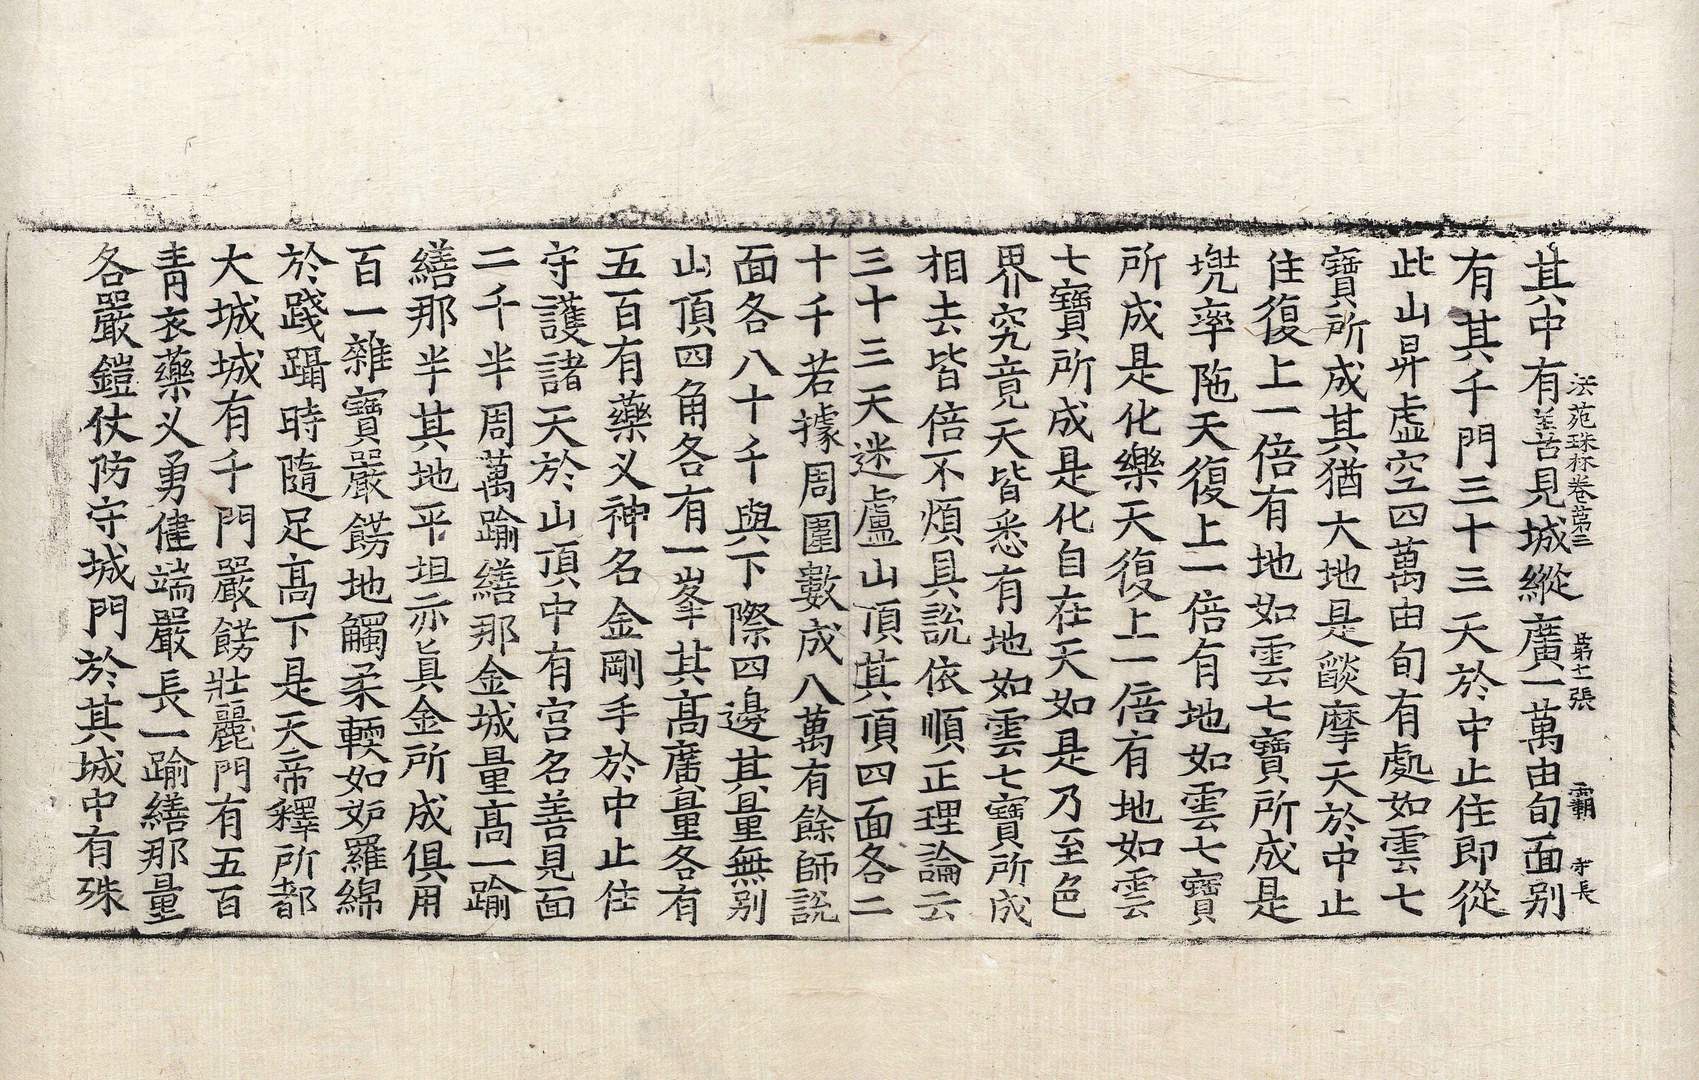 法苑珠林卷第三　第十一張　霸　守長
其中有善見城縱廣一萬由旬面别
有其千門三十三天於中止住即從
此山昇虛空四萬由旬有處如雲七
寶所成其猶大地是燄摩天於中止
住復上一倍有地如雲七寶所成是
兠率陁天復上一倍有地如雲七寶
所成是化樂天復上一倍有地如雲
七寶所成是化自在天如是乃至色
界究竟天皆悉有地如雲七寶所成
相去皆倍不煩具說依順正理論云
三十三天迷盧山頂其頂四面各二
十千若據周圍數成八萬有餘師說
面各八十千與下際四邊其量無别
山頂四角各有一峯其髙廣量各有
五百有藥义神名金剛手於中止住
守護諸天於山頂中有宫名善見面
二千半周萬踰繕那金城量髙一踰
繕那半其地平坦亦真金所成俱用
百一雜寶嚴餝地觸柔輭如妒羅綿
於踐躡時隨足髙下是天帝釋所都
大城城有千門嚴餝壯麗門有五百
青衣藥义勇健端嚴長一踰繕那量
各嚴鎧仗防守城門於其城中有殊